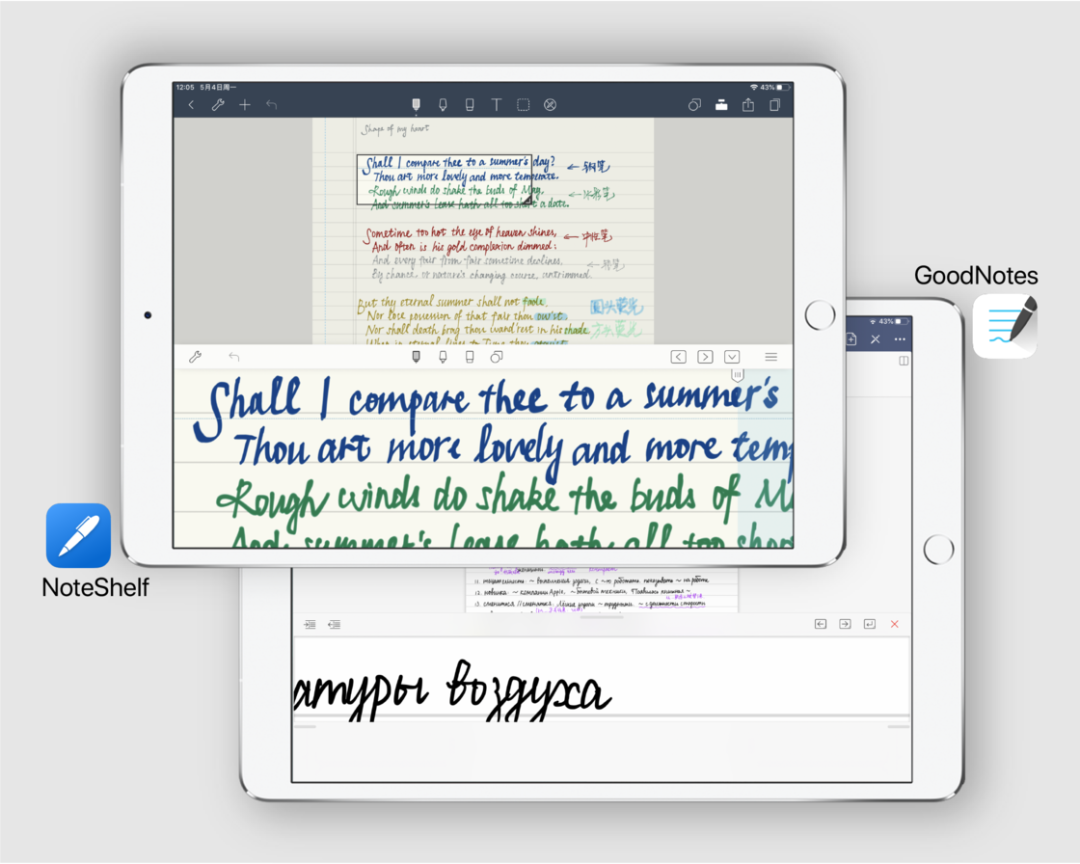 12:05 5月4日周一
43%
Shape of my heart
Shall I compare thee to a summer's day? ← 钢笔
Thou art more lovely and more temperate.
Rough winds do shake the buds of May,
And summer's lease hath all too short a date.
Sometime too hot the eye of heaven shines, ← 中性笔
And often is his gold complexion dimmed;
And every fair from fair sometime declines,
By chance, or nature's changing course, untrimmed.
But thy eternal summer shall not fade, 圆头荧光
Nor lose possession of that fair thou ow'st
Nor shall death brag thou wand'rest in his shade 方头荧光
When in eternal lines to Time thou
Shall I compare thee to a summer's
Thou art more lovely and more temp
Rough winds do shake the buds of Ma
And summer's lease hath all too shor
NoteShelf
GoodNotes
43%
атуры воздуха